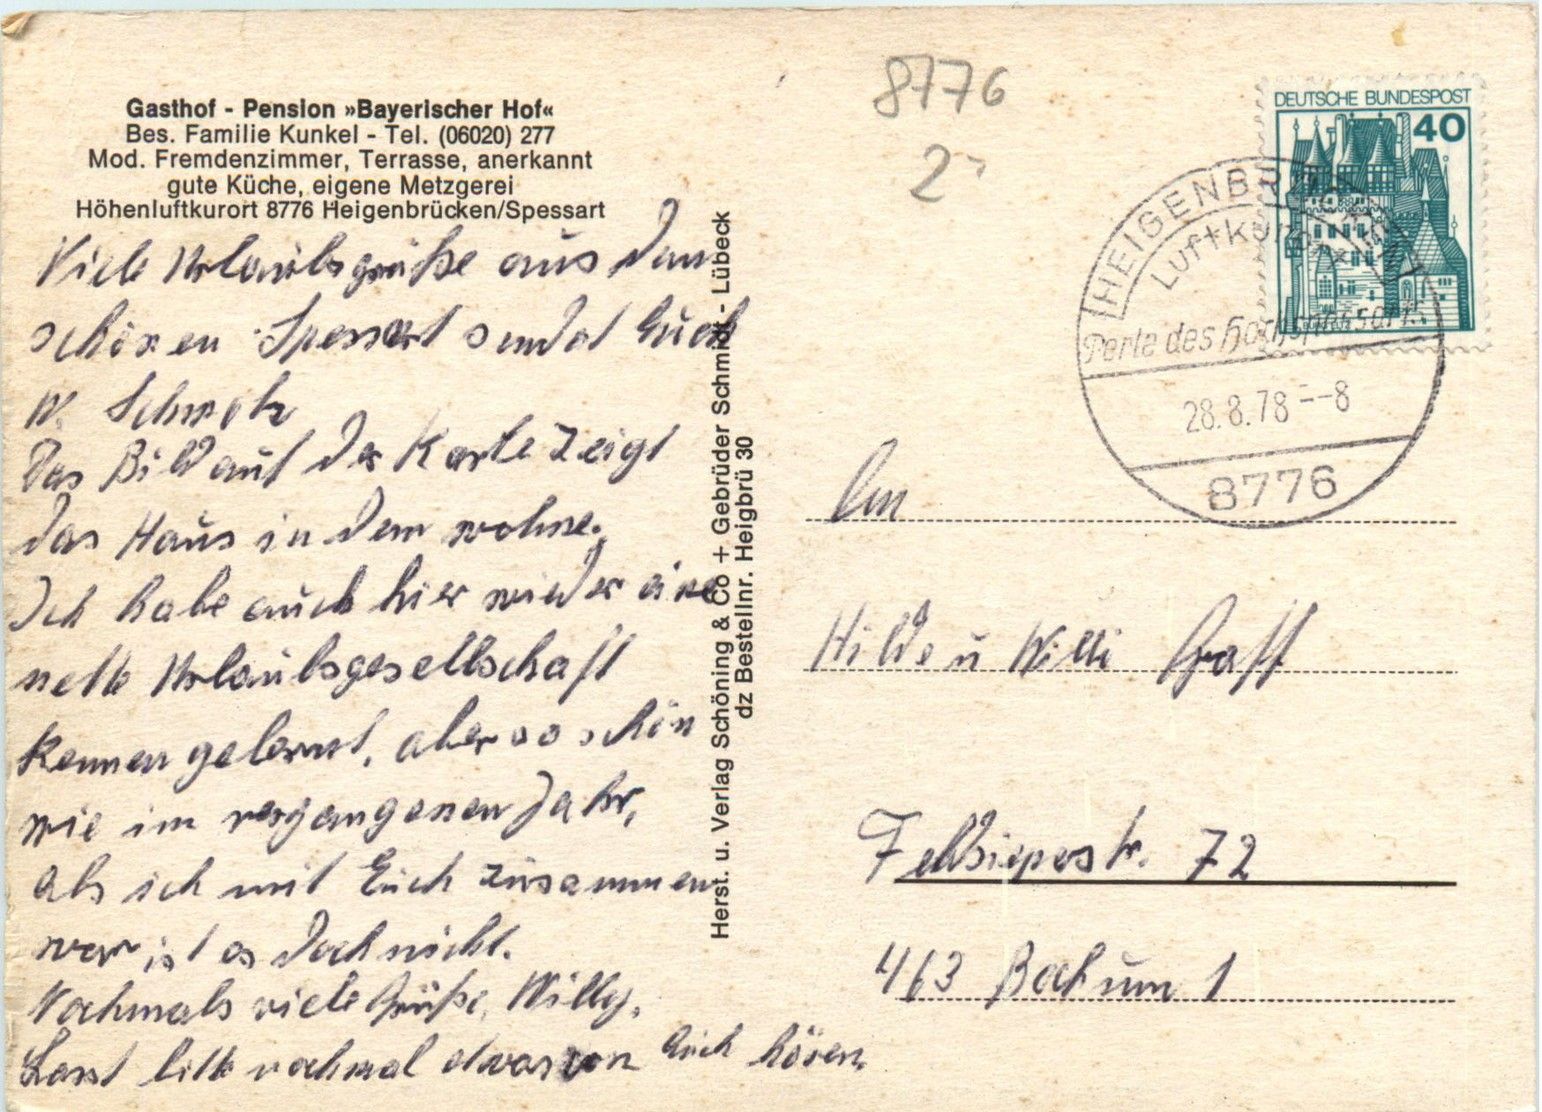 Gasthof - Pension »Bayerischer Hof«
Bes. Familie Kunkel - Tel. (06020) 277
Mod. Fremdenzimmer, Terrasse, anerkannt
gute Küche, eigene Metzgerei
Höhenluftkurort 8776 Heigenbrücken/Spessart
Viele Urlaubsgrüße aus dem
schönen Spessart sendet Euch
W.
Das Bild auf der Karte zeigt
das Haus in dem wohne.
Ich habe auch hier wieder eine
nette Urlaubsgesellschaft
kennen gelernt, aber so schön
wie im vergangenen Jahr,
als ich mit Euch zusammen
war ist es doch nicht.
Nochmals viele Grüße, Willy.
Lasst bitte nochmal etwas von Euch hören.
Herst. u. Verlag Schöning & Co + Gebrüder Schmidt - Lübeck
dz Bestellnr. Heigbrü 30
8776
2
DEUTSCHE BUNDESPOST
40
HEIGENBRÜCKEN
Luftkurort
Perle des Hochspessarts
28.8.78 --8
8776
An
Hilde u Willi Graff
Feldsieperstr. 72
463 Bochum 1